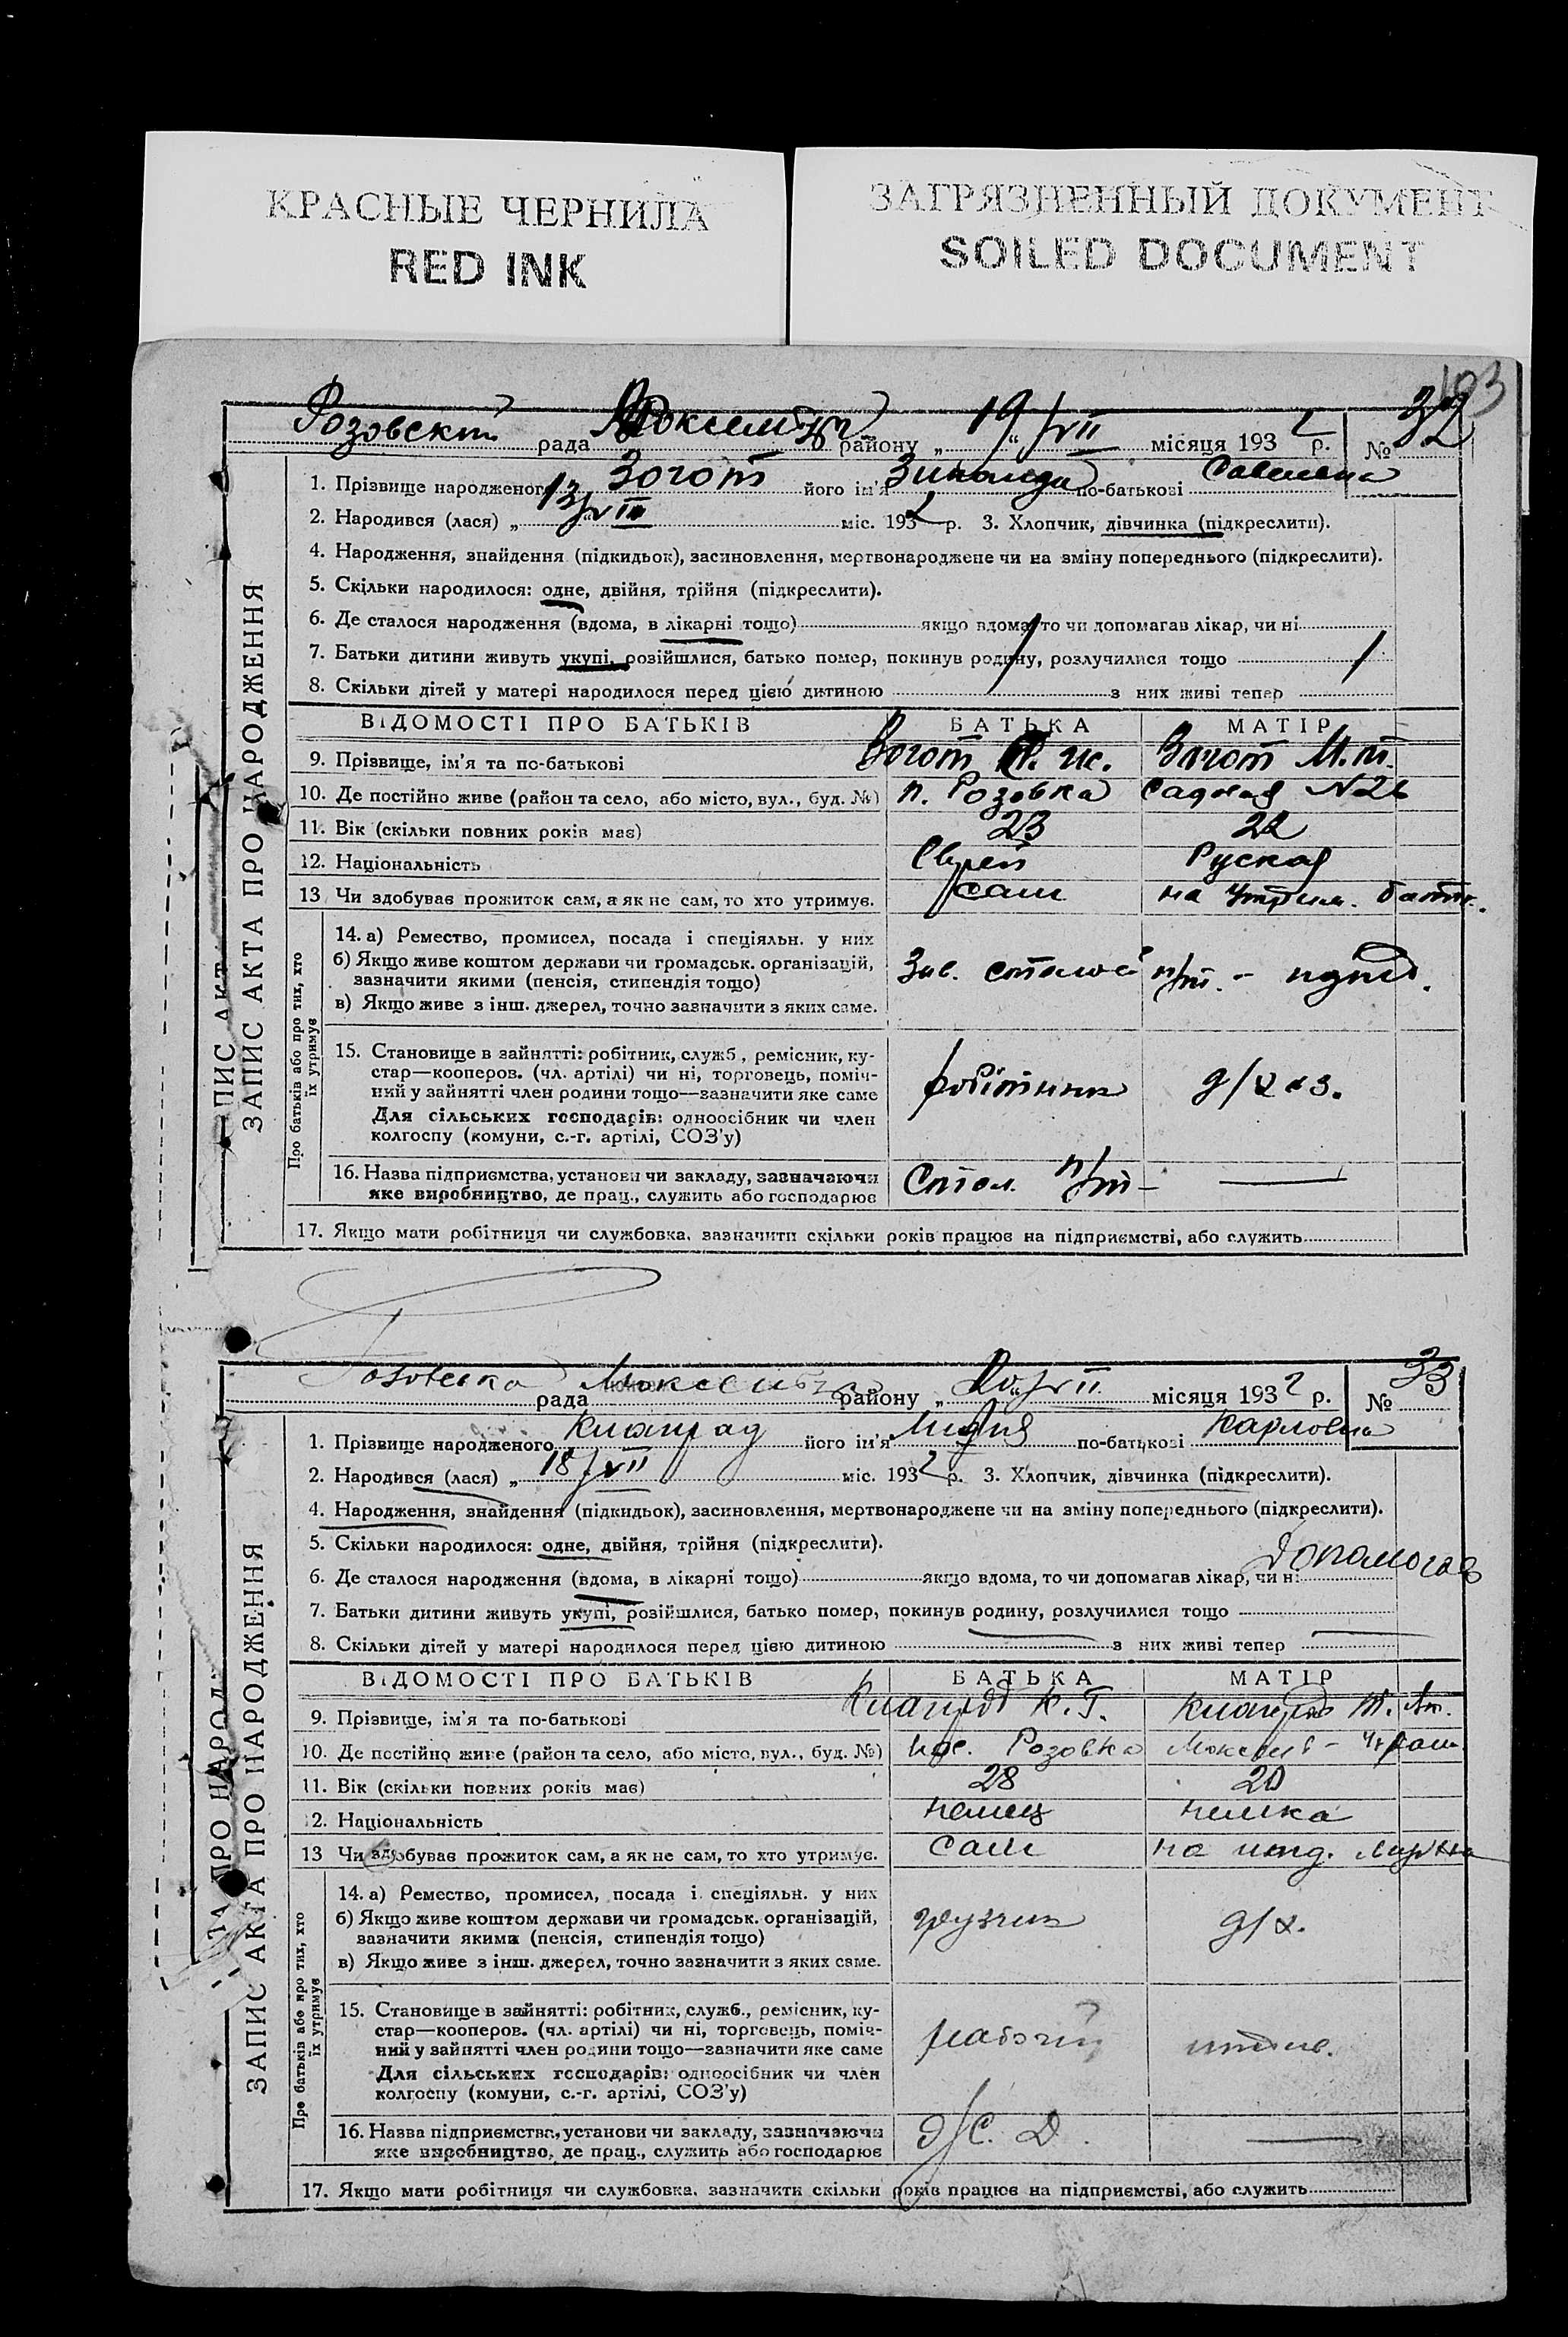 КРАСНЫЕ ЧЕРНИЛА
RED INK
ЗАГРЯЗНЕННЫЙ ДОКУМЕНТ
SOILED DOCUMENT
рада району „ 19/VII місяця 193 2 р. № 32
1. Прізвище народженого Зогот його ім'я Зинаида по-батькові Савельевна
2. Народився (лася) „ 13/VII міс. 1932 р. 3. Хлопчик, дівчинка (підкреслити).
4. Народження, знайдення (підкидьок), засиновлення, мертвонароджене чи на зміну попереднього (підкреслити).
5. Скільки народилося: одне, двійня, трійня (підкреслити).
6. Де сталося народження (вдома, в лікарні тощо) якщо вдома, то чи допомагав лікар, чи ні
7. Батьки дитини живуть укупі, розійшлися, батько помер, покинув родину, розлучилися тощо
8. Скільки дітей у матері народилося перед цією дитиною з них живі тепер
ВІДОМОСТІ ПРО БАТЬКІВ БАТЬКА МАТІР
9. Прізвище, ім'я та по-батькові Зогот Зогот М.
10. Де постійно живе (район та село, або місто, вул., буд. №) п. Розовка Садовая №26
11. Вік (скільки повних років має) 23 22
12. Національність Еврей Руская
13. Чи здобуває прожиток сам, а як не сам, то хто утримує. сам на
Про батьків або про тих, хто їх утримує
14. а) Ремество, промисел, посада і спеціяльн. у них
б) Якщо живе коштом держави чи громадськ. організацій,
зазначити якими (пенсія, стипендія тощо)
в) Якщо живе з інш. джерел, точно зазначити з яких саме.
Зав. столовой
15. Становище в зайнятті: робітник, служб., ремісник, ку-
стар—кооперов. (чл. артілі) чи ні, торговець, поміч-
ний у зайнятті член родини тощо—зазначити яке саме
Для сільських господарів: одноосібник чи член
колгоспу (комуни, с.-г. артілі, СОЗ'у)
робітник д/хаз.
16. Назва підприємства, установи чи закладу, зазначаючи
яке виробництво, де прац., служить або господарює
Стол.
17. Якщо мати робітниця чи службовка, зазначити скільки років працює на підприємстві, або служить
ЗАПИС АКТА ПРО НАРОДЖЕННЯ
рада району „ 20/VII місяця 193 2 р. № 33
1. Прізвище народженого його ім'я Лидия по-батькові Карловна
2. Народився (лася) „ 18/VII міс. 1932 р. 3. Хлопчик, дівчинка (підкреслити).
4. Народження, знайдення (підкидьок), засиновлення, мертвонароджене чи на зміну попереднього (підкреслити).
5. Скільки народилося: одне, двійня, трійня (підкреслити).
6. Де сталося народження (вдома, в лікарні тощо) якщо вдома, то чи допомагав лікар, чи ні допомогав
7. Батьки дитини живуть укупі, розійшлися, батько помер, покинув родину, розлучилися тощо
8. Скільки дітей у матері народилося перед цією дитиною з них живі тепер
ВІДОМОСТІ ПРО БАТЬКІВ БАТЬКА МАТІР
9. Прізвище, ім'я та по-батькові К. Г.
10. Де постійно живе (район та село, або місто, вул., буд. №) Розовка
11. Вік (скільки повних років має) 28 20
12. Національність немец немка
13 Чи здобуває прожиток сам, а як не сам, то хто утримує. сам на
Про батьків або про тих, хто їх утримує
14. а) Ремество, промисел, посада і спеціяльн. у них
б) Якщо живе коштом держави чи громадськ. організацій,
зазначити якими (пенсія, стипендія тощо)
в) Якщо живе з інш. джерел, точно зазначити з яких саме.
грузчик д/х.
15. Становище в зайнятті: робітник, служб., ремісник, ку-
стар—кооперов. (чл. артілі) чи ні, торговець, поміч-
ний у зайнятті член родини тощо—зазначити яке саме
Для сільських господарів: одноосібник чи член
колгоспу (комуни, с.-г. артілі, СОЗ'у)
рабочий
16. Назва підприємства, установи чи закладу, зазначаючи
яке виробництво, де прац., служить або господарює
17. Якщо мати робітниця чи службовка, зазначити скільки років працює на підприємстві, або служить
ЗАПИС АКТА ПРО НАРОДЖЕННЯ